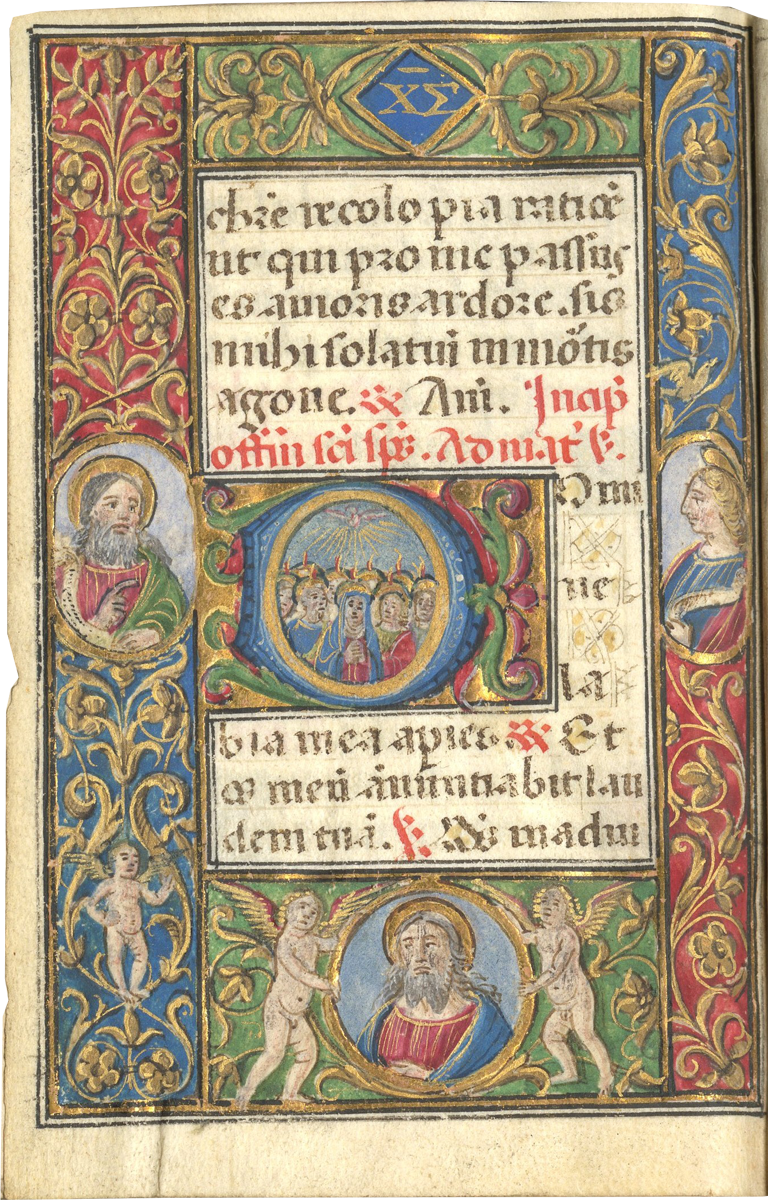 XS
chr̄e recolo pia ratiōe
ut qui pro me passus
es amoris ardore. sis
mihi solatiū in mōtis
agone. Am̄. Incip̄
offm̄ sc̄i sp̄s. Ad mat̄ ℣.
Domi
ne
la
bia mea apies. Et
os meū ānūntiabit lau
dem tuā. ℣. Ds̄ in adiu